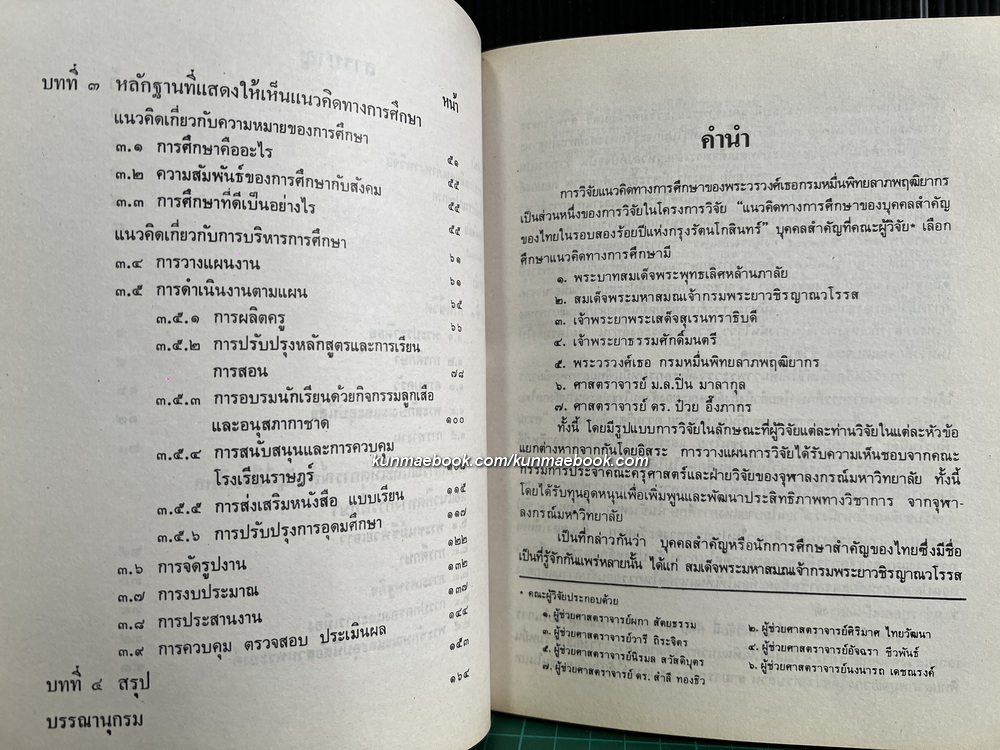 หน้า
บทที่ ๓ หลักฐานที่แสดงให้เห็นแนวคิดทางการศึกษา
แนวคิดเกี่ยวกับความหมายของการศึกษา ๕๑
๓.๑ การศึกษาคืออะไร ๕๕
๓.๒ ความสัมพันธ์ของการศึกษากับสังคม ๕๕
๓.๓ การศึกษาที่ดีเป็นอย่างไร ๕๕
แนวคิดเกี่ยวกับการบริหารการศึกษา ๖๑
๓.๔ การวางแผนงาน ๖๑
๓.๕ การดำเนินงานตามแผน ๖๕
๓.๕.๑ การผลิตครู ๖๖
๓.๕.๒ การปรับปรุงหลักสูตรและการเรียน
การสอน ๗๘
๓.๕.๓ การอบรมนักเรียนด้วยกิจกรรมลูกเสือ
และอนุสภากาชาด ๑๐๐
๓.๕.๔ การสนับสนุนและการควบคุม
โรงเรียนราษฎร์
๓.๕.๕ การส่งเสริมหนังสือ แบบเรียน ๑๑๕
๓.๕.๖ การปรับปรุงการอุดมศึกษา ๑๑๗
๓.๖ การจัดรูปงาน ๑๒๒
๓.๗ การงบประมาณ ๑๓๒
๓.๘ การประสานงาน ๑๓๗
๓.๙ การควบคุม ตรวจสอบ ประเมินผล ๑๔๔
บทที่ ๔ สรุป ๑๕๓
บรรณานุกรม ๑๖๔
คำนำ
การวิจัยแนวคิดทางการศึกษาของพระวรวงศ์เธอกรมหมื่นพิทยลาภพฤฒิยากร
เป็นส่วนหนึ่งของการวิจัยในโครงการวิจัย "แนวคิดทางการศึกษาของบุคคลสำคัญ
ของไทยในรอบสองร้อยปีแห่งกรุงรัตนโกสินทร์" บุคคลสำคัญที่คณะผู้วิจัย* เลือก
ศึกษาแนวคิดทางการศึกษามี
๑. พระบาทสมเด็จพระพุทธเลิศหล้านภาลัย
๒. สมเด็จพระมหาสมณเจ้ากรมพระยาวชิรญาณวโรรส
๓. เจ้าพระยาพระเสด็จสุเรนทราธิบดี
๔. เจ้าพระยาธรรมศักดิ์มนตรี
๕. พระวรวงศ์เธอ กรมหมื่นพิทยลาภพฤฒิยากร
๖. ศาสตราจารย์ ม.ล.ปิ่น มาลากุล
๗. ศาสตราจารย์ ดร. ป๋วย อึ๊งภากร
ทั้งนี้ โดยมีรูปแบบการวิจัยในลักษณะที่ผู้วิจัยแต่ละท่านวิจัยในแต่ละหัวข้อ
แยกต่างหากจากกันโดยอิสระ การวางแผนการวิจัยได้รับความเห็นชอบจากคณะ
กรรมการประจำคณะครุศาสตร์และฝ่ายวิจัยของจุฬาลงกรณ์มหาวิทยาลัย ทั้งนี้
โดยได้รับทุนอุดหนุนเพื่อเพิ่มพูนและพัฒนาประสิทธิภาพทางวิชาการ จากจุฬา-
ลงกรณ์มหาวิทยาลัย
เป็นที่กล่าวกันว่า บุคคลสำคัญหรือนักการศึกษาสำคัญของไทยซึ่งมีชื่อ
เป็นที่รู้จักกันแพร่หลายนั้น ได้แก่ สมเด็จพระมหาสมณเจ้ากรมพระยาวชิรญาณวโรรส
* คณะผู้วิจัยประกอบด้วย
๑. ผู้ช่วยศาสตราจารย์ผกา สัตยธรรม ๒. ผู้ช่วยศาสตราจารย์ศิริมาศ ไทยวัฒนา
๓. ผู้ช่วยศาสตราจารย์วารี ถิระจิตร ๔. ผู้ช่วยศาสตราจารย์อัจฉรา ชีวพันธ์
๕. ผู้ช่วยศาสตราจารย์นิรมล สวัสดิบุตร ๖. ผู้ช่วยศาสตราจารย์นงนารถ เดชณรงค์
๗. ผู้ช่วยศาสตราจารย์ ดร. สำลี ทองธิว
kunmaebook.com/kunmaebook.com